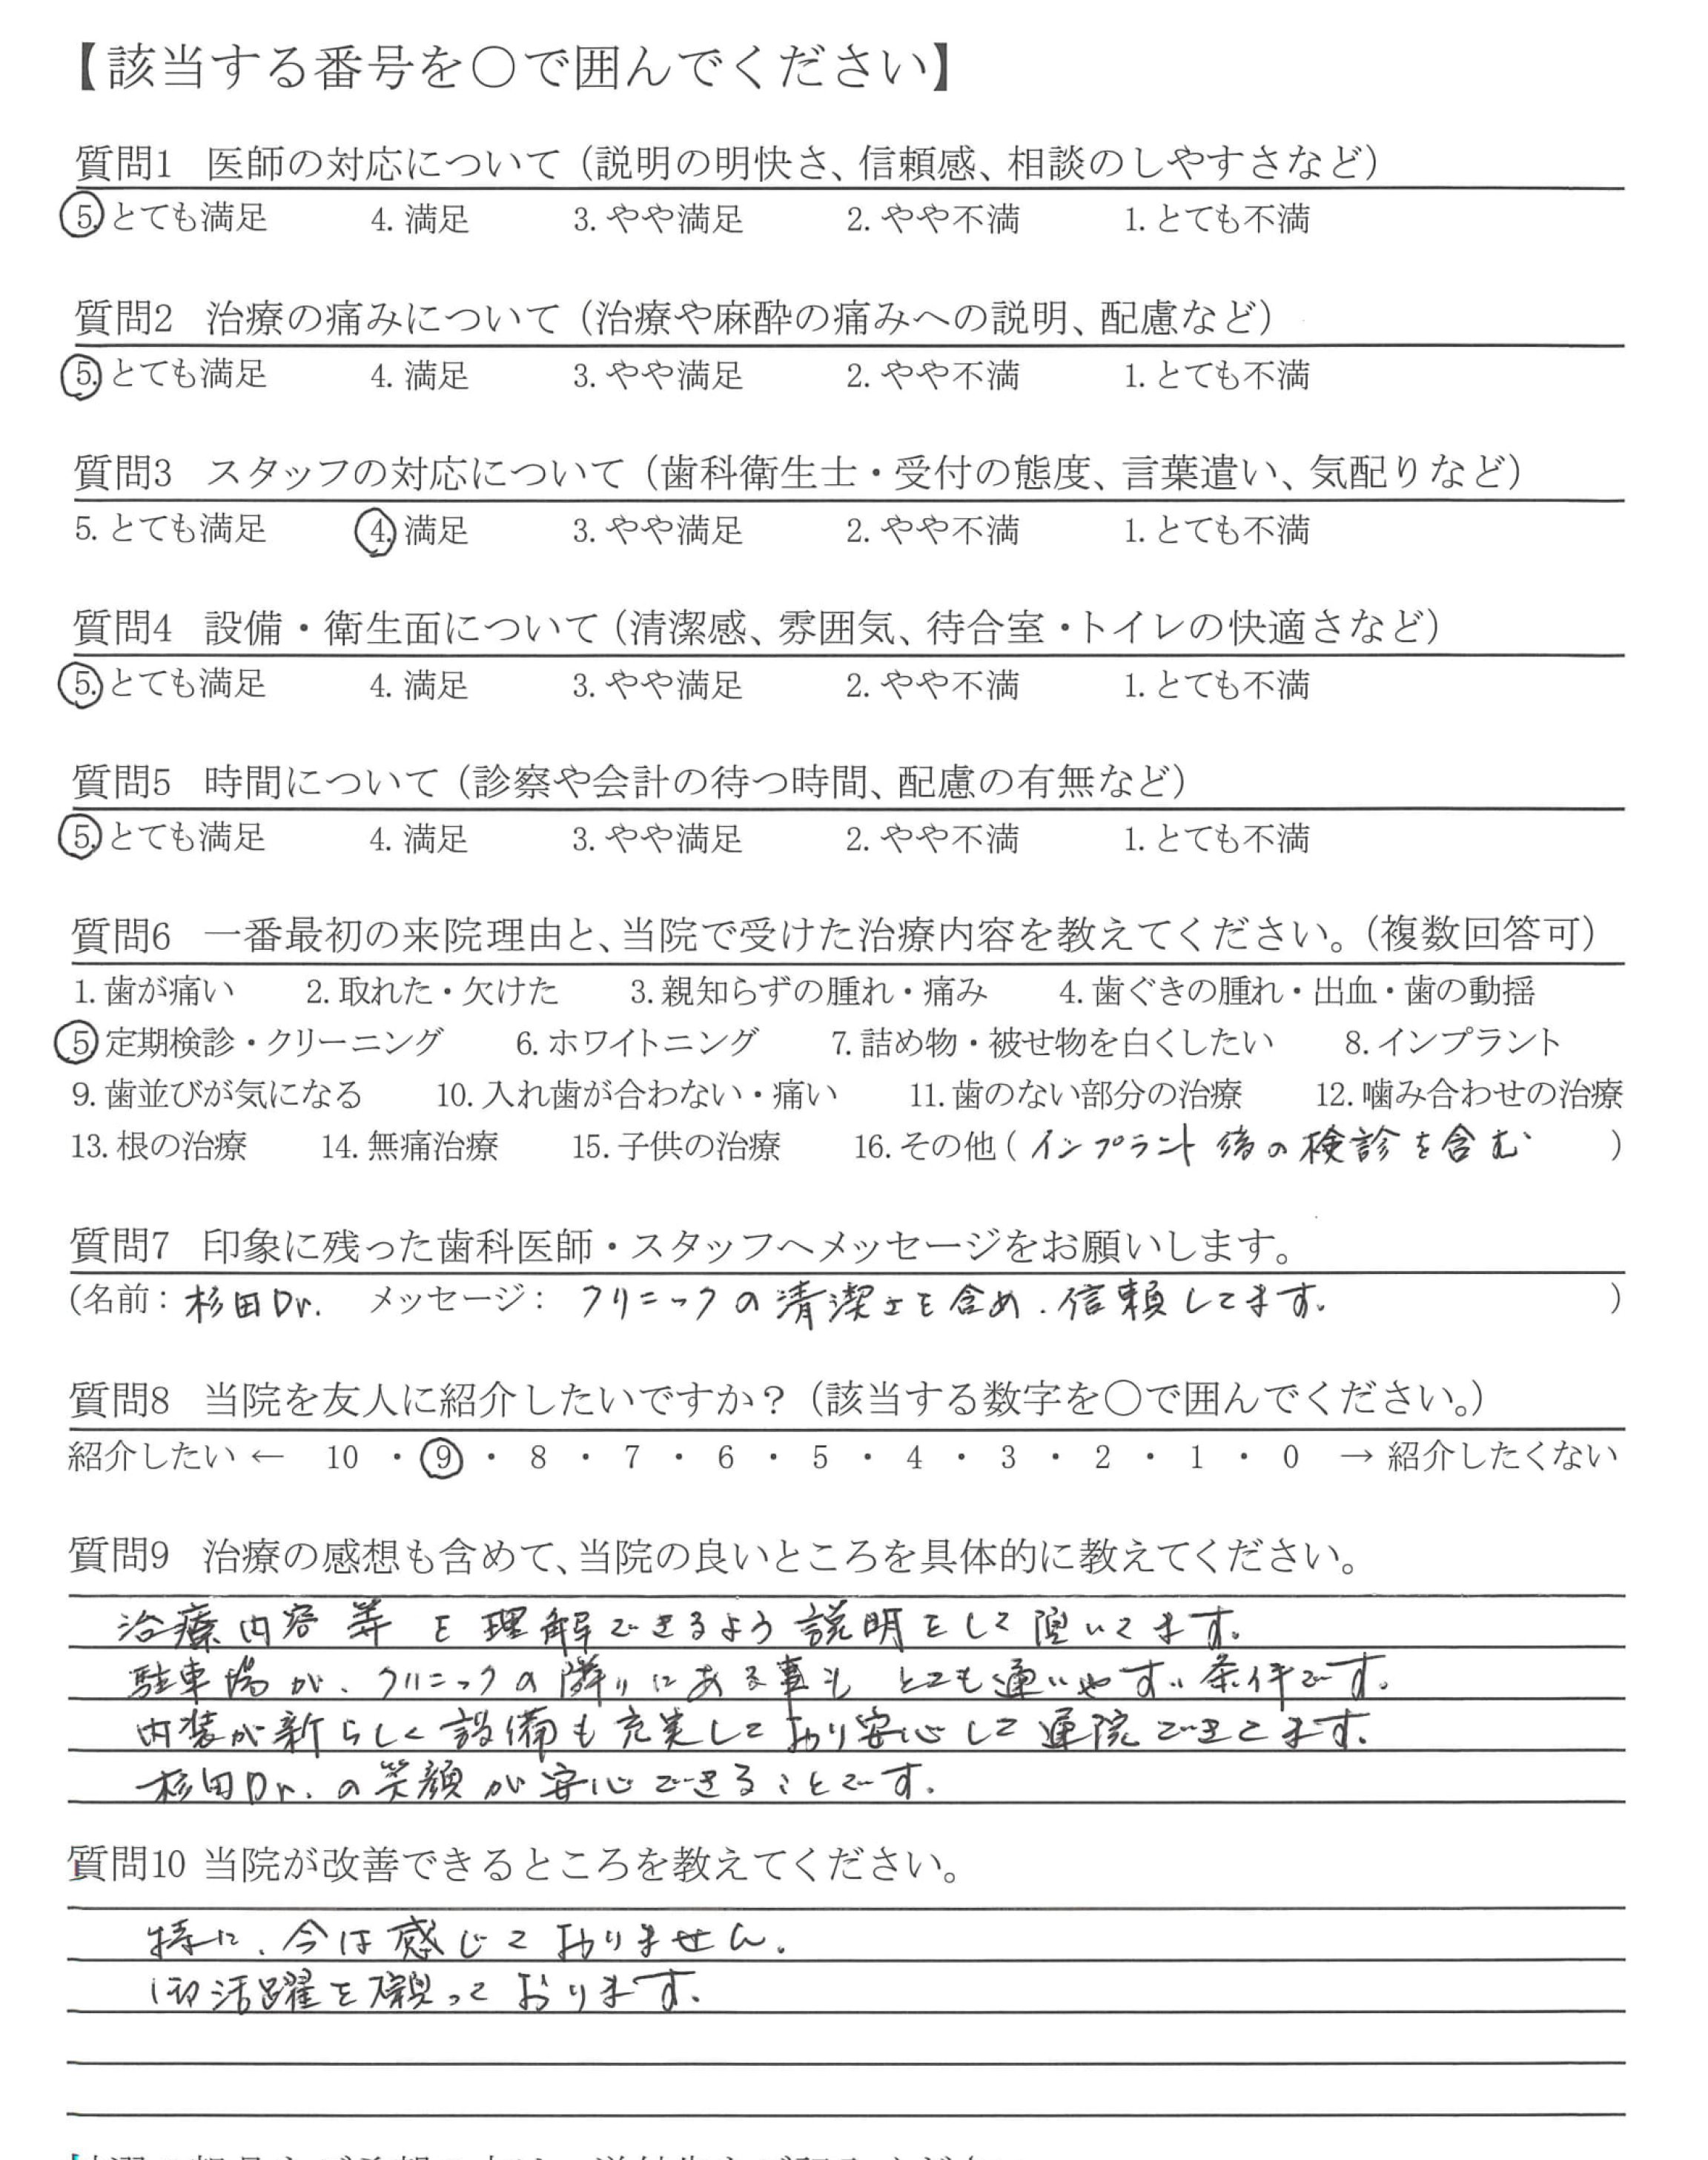 【該当する番号を〇で囲んでください】
質問1 医師の対応について（説明の明快さ、信頼感、相談のしやすさなど）
5.とても満足 4.満足 3.やや満足 2.やや不満 1.とても不満
質問2 治療の痛みについて（治療や麻酔の痛みへの説明、配慮など）
5.とても満足 4.満足 3.やや満足 2.やや不満 1.とても不満
質問3 スタッフの対応について（歯科衛生士・受付の態度、言葉遣い、気配りなど）
5.とても満足 4.満足 3.やや満足 2.やや不満 1.とても不満
質問4 設備・衛生面について（清潔感、雰囲気、待合室・トイレの快適さなど）
5.とても満足 4.満足 3.やや満足 2.やや不満 1.とても不満
質問5 時間について（診察や会計の待つ時間、配慮の有無など）
5.とても満足 4.満足 3.やや満足 2.やや不満 1.とても不満
質問6 一番最初の来院理由と、当院で受けた治療内容を教えてください。（複数回答可）
1.歯が痛い 2.取れた・欠けた 3.親知らずの腫れ・痛み 4.歯ぐきの腫れ・出血・歯の動揺
5.定期検診・クリーニング 6.ホワイトニング 7.詰め物・被せ物を白くしたい 8.インプラント
9.歯並びが気になる 10.入れ歯が合わない・痛い 11.歯のない部分の治療 12.噛み合わせの治療
13.根の治療 14.無痛治療 15.子供の治療 16.その他（インプラント後の検診を含む）
質問7 印象に残った歯科医師・スタッフへメッセージをお願いします。
（名前：杉田Dr. メッセージ：クリニックの清潔さを含め、信頼してます。）
質問8 当院を友人に紹介したいですか？（該当する数字を〇で囲んでください。）
紹介したい ← 10 ・ 9 ・ 8 ・ 7 ・ 6 ・ 5 ・ 4 ・ 3 ・ 2 ・ 1 ・ 0 → 紹介したくない
質問9 治療の感想も含めて、当院の良いところを具体的に教えてください。
治療内容等を理解できるよう説明をして頂いてます。
駐車場が、クリニックの隣りにある事もとても通いやすい条件です。
内装が新らしく設備も充実しており安心して通院できてます。
杉田Dr.の笑顔が安心できることです。
質問10 当院が改善できるところを教えてください。
特に、今は感じておりません。
活躍を願っております。